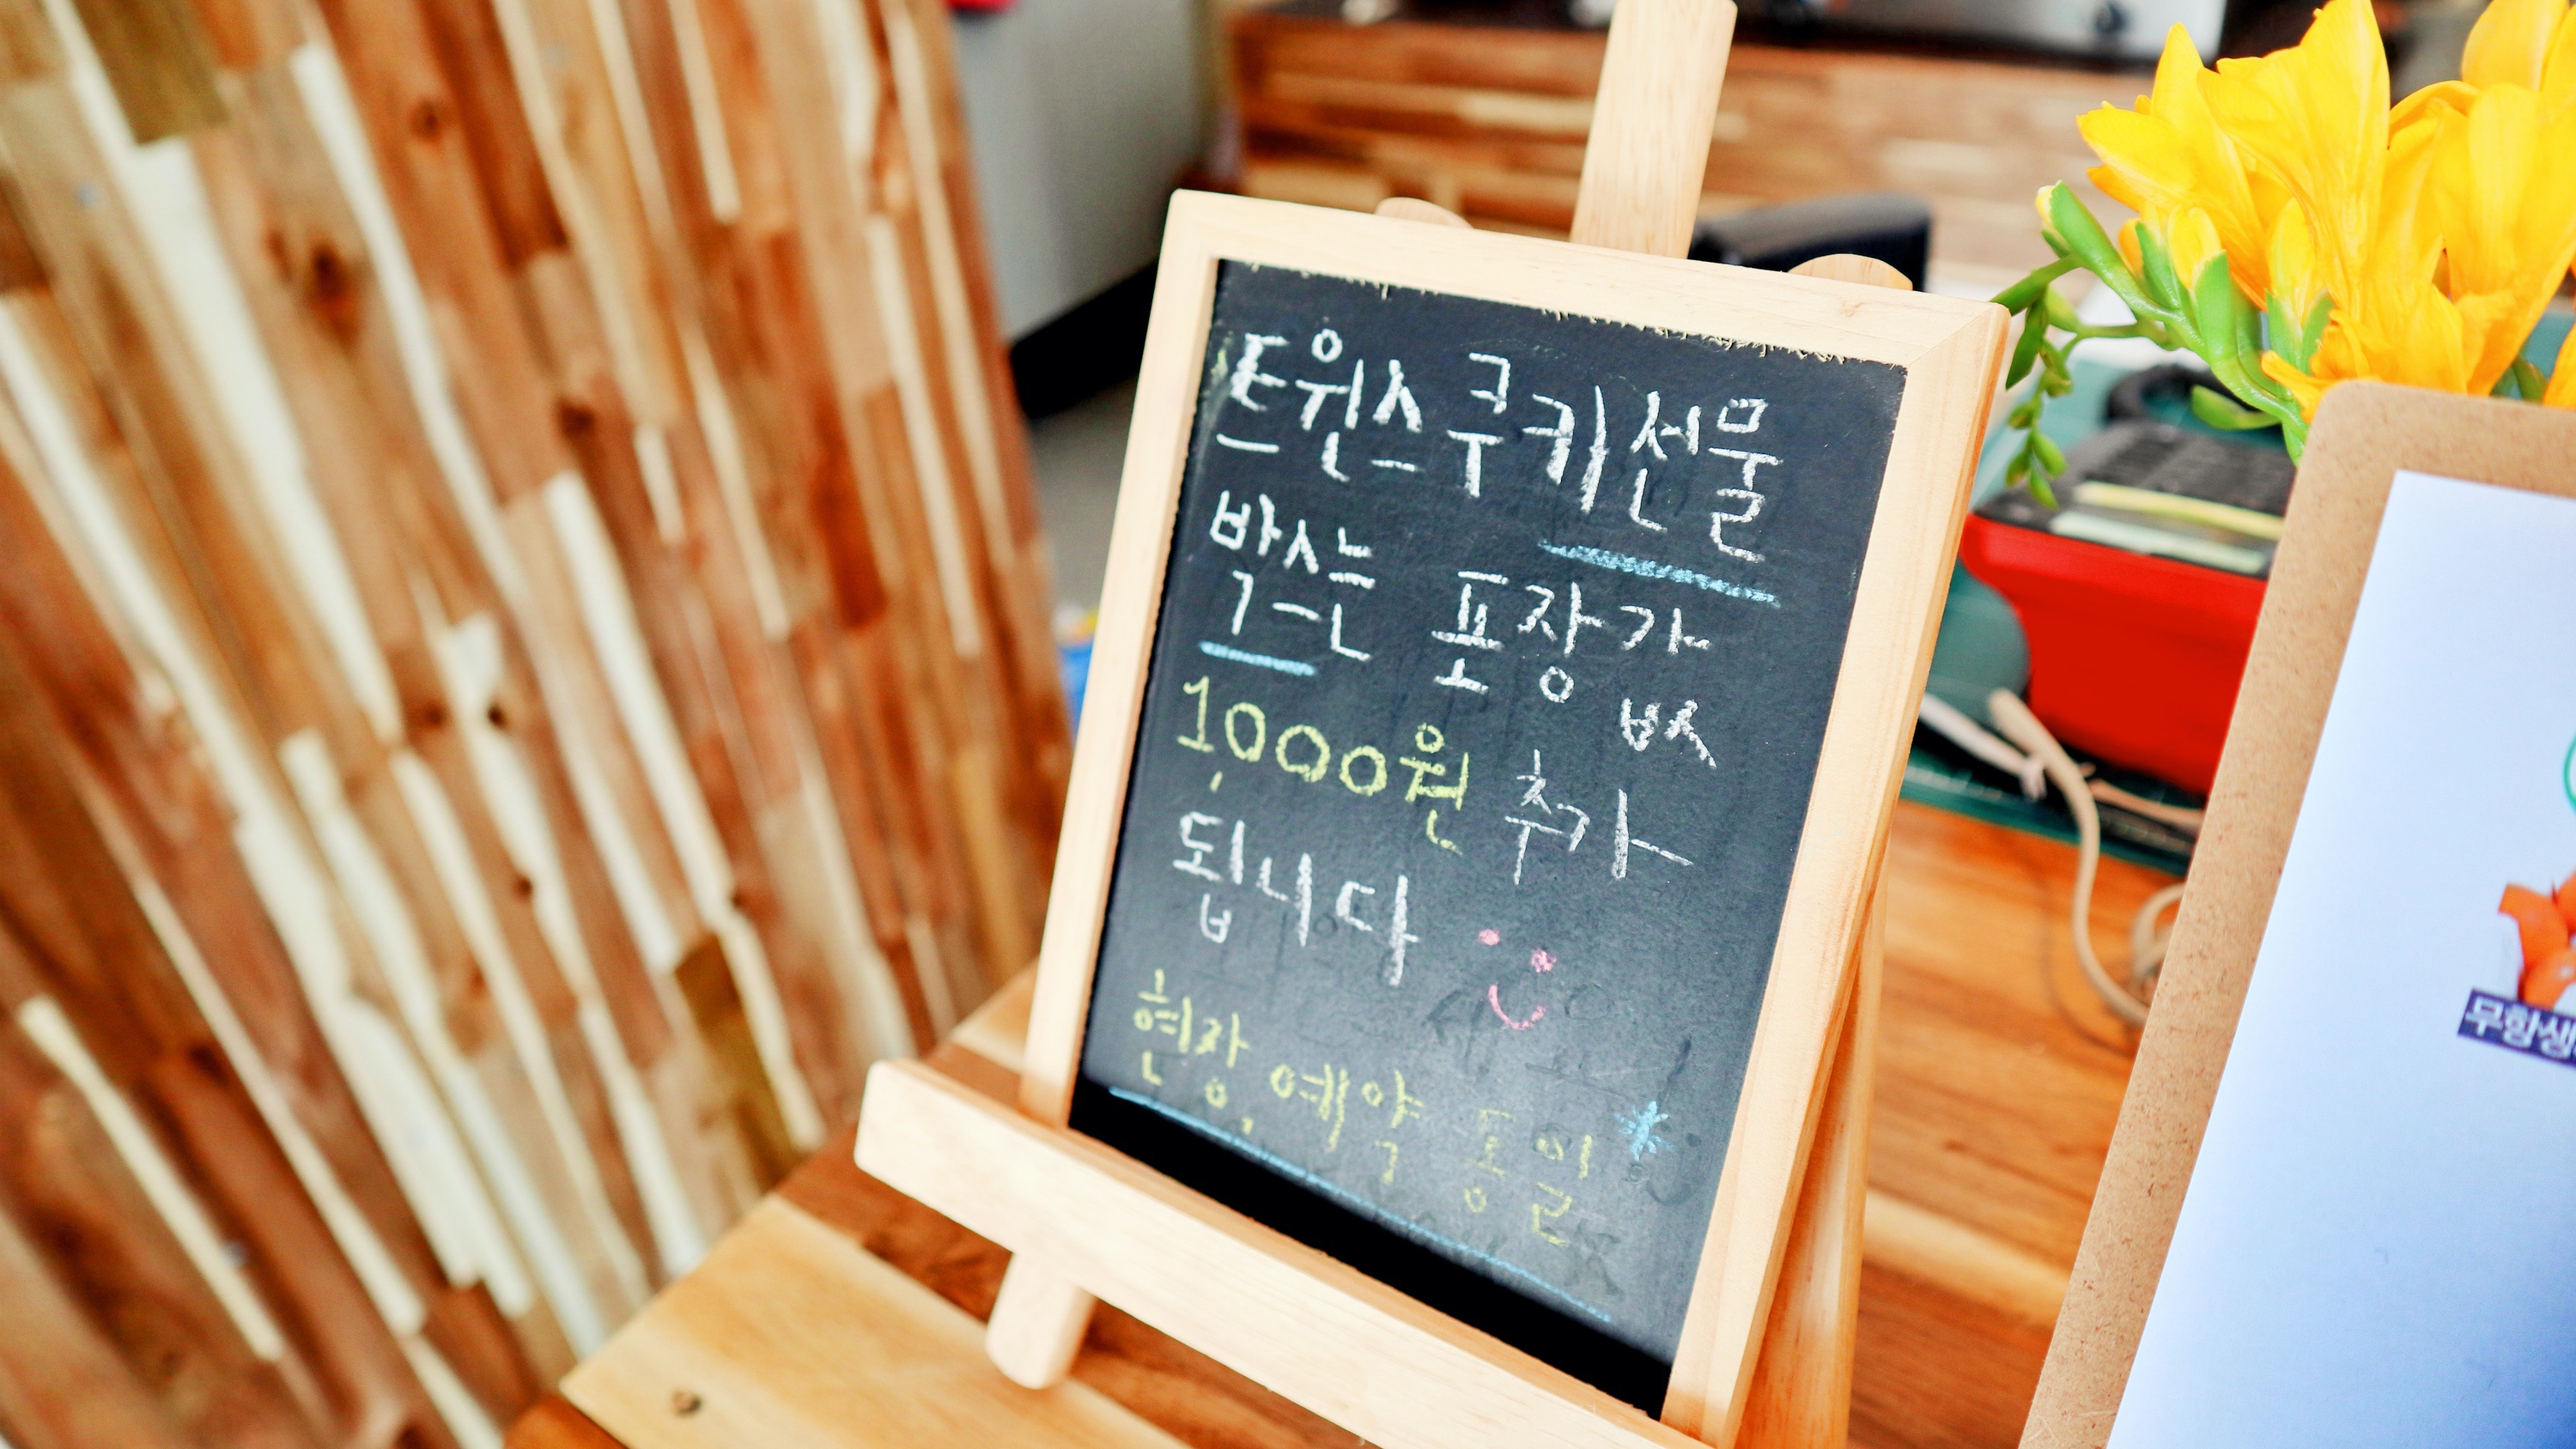 트윈스 쿠키 선물
박스는 포장값
1,000원 추가
됩니다
현장, 예약 동일
무항생